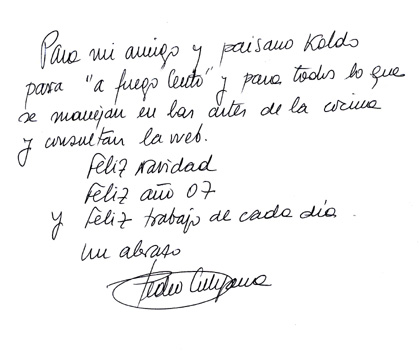 Para mi amigo y paisano Koldo
para "a fuego lento" y para todos los que
se manejan en las artes de la cocina
y consultan la web.
Feliz Navidad
Feliz año 07
y Feliz trabajo de cada día.
Un abrazo
Pedro